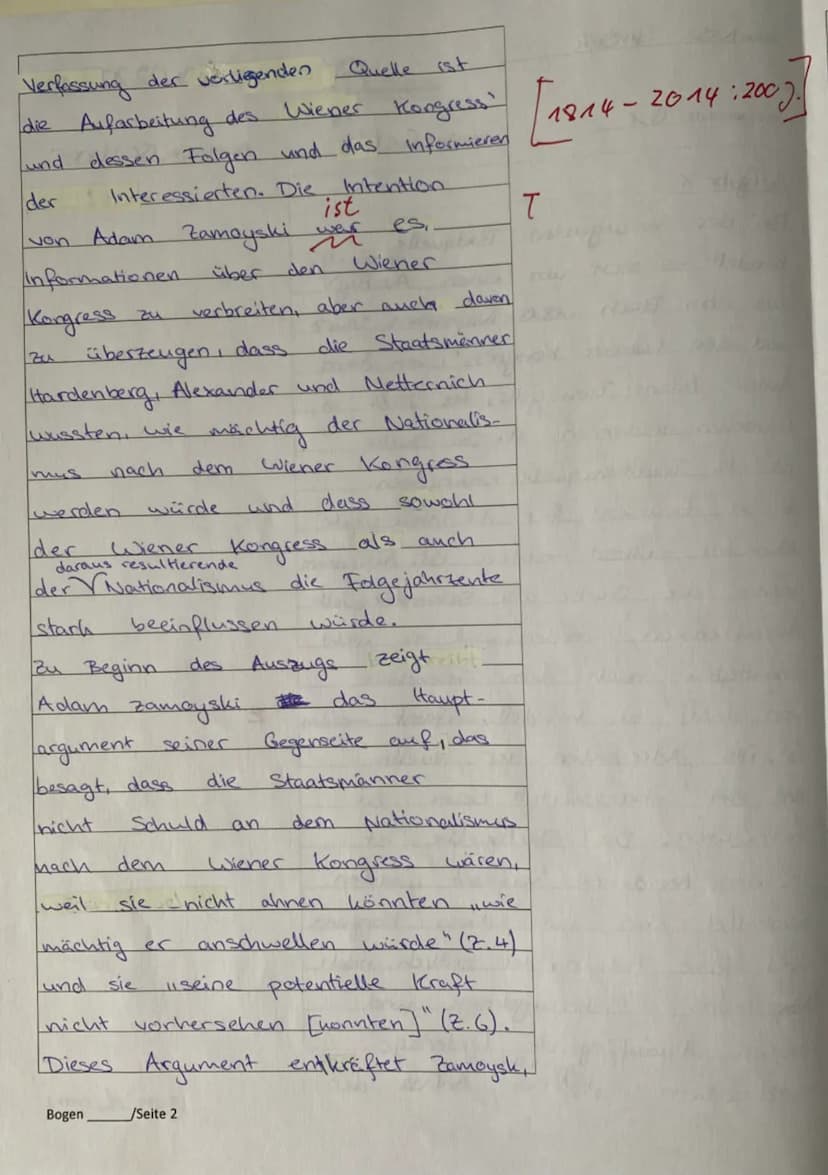 Verfassung der vorliegenden Quelle ist
[1814 - 2014 : 200 J.]
die Aufarbeitung des Wiener Kongress'
und dessen Folgen und das Informieren
der Interessierten. Die Intention
ist
T
von Adam Zamoyski war es,
Informationen über den Wiener
Kongress zu verbreiten, aber auch davon
zu überzeugen, dass die Staatsmänner
Hardenberg, Alexander und Metternich
wussten, wie mächtig der Nationalis-
mus nach dem Wiener Kongress
werden würde und dass sowohl
der Wiener Kongress als auch
daraus resultierende
der Nationalismus die Folgejahrzente
stark beeinflussen würde.
Zu Beginn des Auszugs zeigt
Adam Zamoyski das Haupt-
argument seiner Gegenseite auf, das
besagt, dass die Staatsmänner
nicht Schuld an dem Nationalismus
nach dem Wiener Kongress wären,
weil sie nicht ahnen könnten „wie
mächtig er anschwellen würde" (Z.4)
und sie „seine potentielle Kraft
nicht vorhersehen [konnten]" (Z.6).
Dieses Argument entkräftet Zamoysk,
Bogen ______/Seite 2